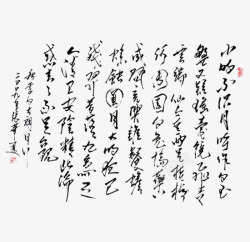 小时不识月呼作白玉
盘又疑瑶台镜飞在青
云端仙人垂两足桂树
何团团白兔捣药
成问言与谁餐蟾
蜍蚀圆影大明夜已
残羿昔落九乌天
人清且安阴精此沦
惑去去不足观